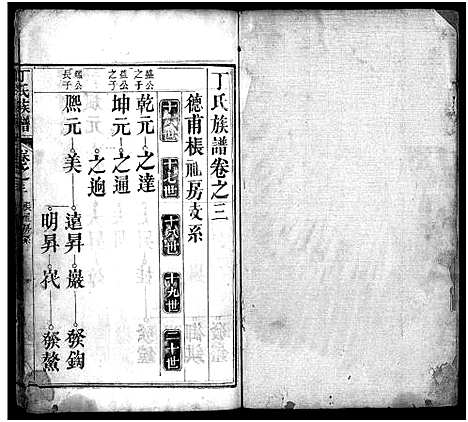 丁氏族譜卷之三
德甫枨礼房支系
十六世 十七世 十八世 十九世 二十世
益公之子 乾元 之達
益公之子 坤元 之通
之逈
公長子 熙元 美 遠昇 巖 發鈞
明昇 發鰲
丁氏族譜 卷之三